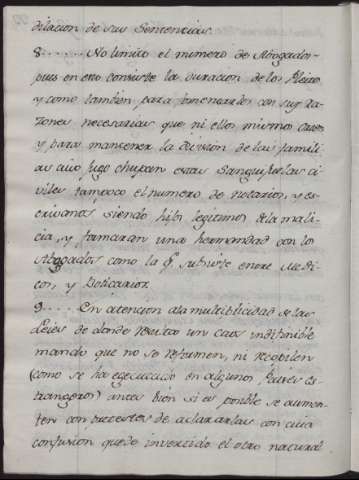 dilacion de sus Sentencias.
8...... No limito el numero de Abogados
pues en esto consiste la duracion de los Pleitos
y como tambien, para fomentarlos con sus ra-
zones necesarias que ni ellos mismos creen
y para mantener la division de las famili-
as cuio jugo chupan estas Sanguijuelas ci-
viles tampoco el numero de Notarios, y es-
crivanos siendo hijos legitimos de la mali-
cia, y formaran una hermandad con los
Abogados como la q.e subsiste entre Medi-
cos, y Boticarios.
9..... En atencion ala multiblicidad de las
Leies de donde resulta un caos indisoluble
mando que no se resumen, ni recopilen
(como se ha egecuccido en algunos Paises es-
trangeros) antes bien si es posible se aumen-
ten con pretextos de aclararlas con cuia
confusion quede invertido el otro natural